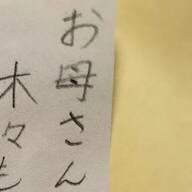 お母さん
木々も